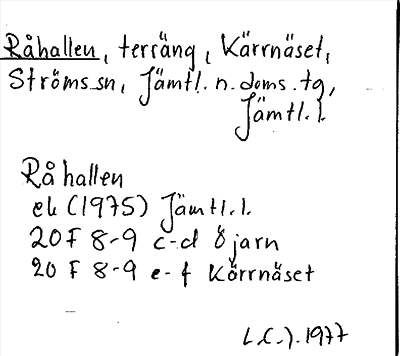 Råhallen, terräng, Kärrnäset,
Ströms sn, Jämtl. n. doms. tg,
Jämtl. l.
Råhallen
ek (1975) Jämtl. l.
20F 8-9 c-d Öjarn
20 F 8-9 e-f Kärrnäset
L.C.J. 1977